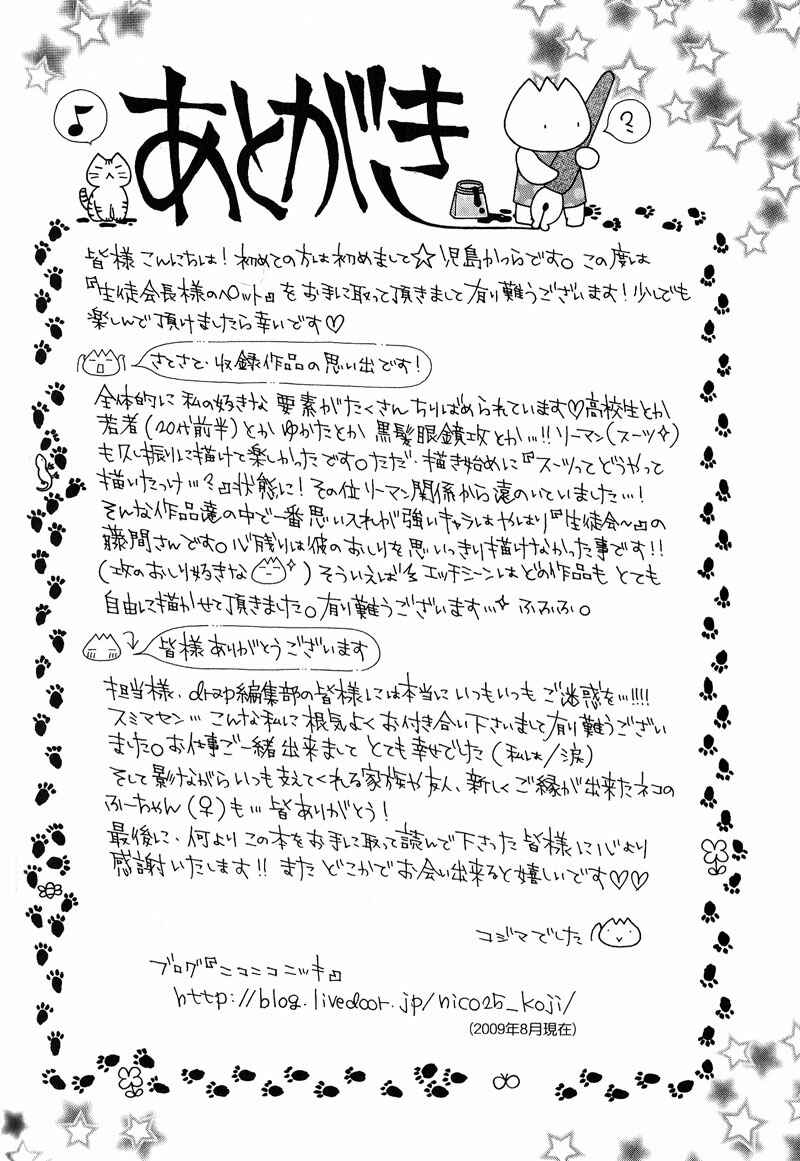 あとがき
♪
?
皆様こんにちは!初めての方は初めまして☆児島かつらです。この度は
『生徒会長様のペット』をお手に取って頂きまして有り難うございます!少しでも
楽しんで頂けましたら幸いです♡
さてさて、収録作品の思い出です!
全体的に私の好きな要素がたくさんちりばめられています♡高校生とか
若者(20代前半)とかゆかたとか黒髪眼鏡攻とか…!!リーマン(スーツ✧)
も久し振りに描けて楽しかったです。ただ、描き始めに『スーツってどうやって
描いたっけ…?』状態に!その位リーマン関係から遠のいていました…!
そんな作品達の中で一番思い入れが強いキャラはやはり『生徒会〜』の
藤間さんです。心残りは彼のおしりを思いっきり描けなかった事です!!
(攻のおしり好きな ✧)そういえばエッチシーンはどの作品もとても
自由に描かせて頂きました。有り難うございます…✧ ふふふ。
皆様ありがとうございます
担当様、drap編集部の皆様には本当にいつもいつもご迷惑を…!!!!
スミマセン…こんな私に根気よくお付き合い下さいまして有り難うござい
ました。お仕事ご一緒出来ましてとても幸せでした(私は/涙)
そして影ながらいつも支えてくれる家族や友人、新しくご縁が出来たネコの
ふーちゃん(♀)も…皆ありがとう!
最後に、何よりこの本をお手に取って読んで下さった皆様に心より
感謝いたします!!またどこかでお会い出来ると嬉しいです♡♡
コジマでした
ブログ『ニコニコニッキ』
http://blog.livedoor.jp/nico25_koji/
(2009年8月現在)